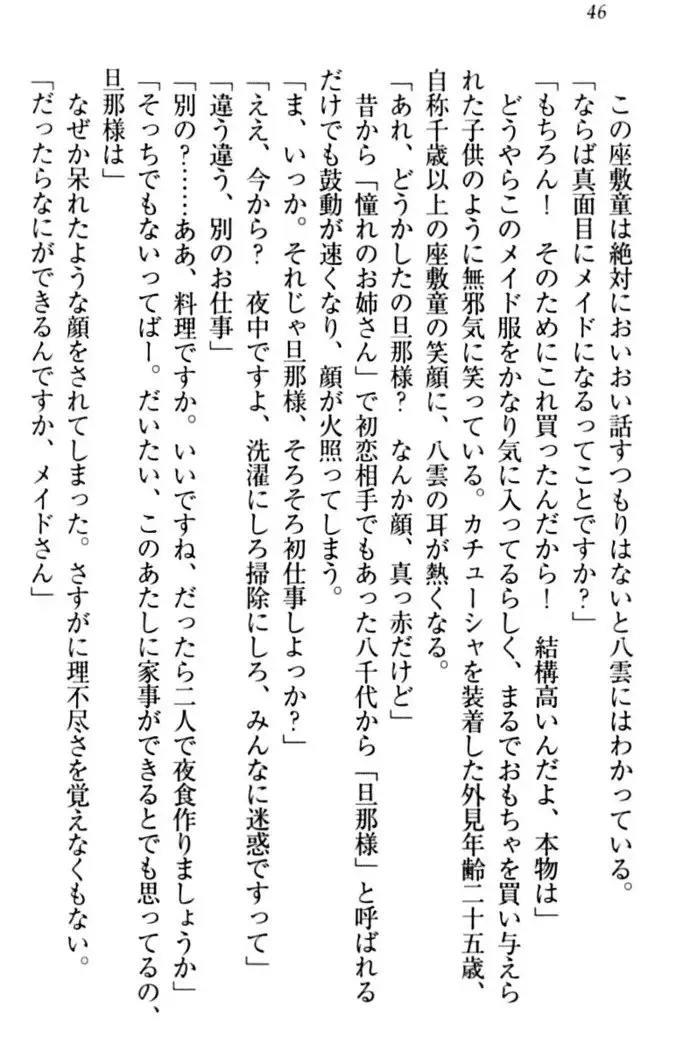 46
この座敷童は絶対においおい話すつもりはないと八雲にはわかっている。
「ならば真面目にメイドになるってことですか？」
「もちろん！　そのためにこれ買ったんだから！　結構高いんだよ、本物は」
どうやらこのメイド服をかなり気に入ってるらしく、まるでおもちゃを買い与えら
れた子供のように無邪気に笑っている。カチューシャを装着した外見年齢二十五歳、
自称千歳以上の座敷童の笑顔に、八雲の耳が熱くなる。
「あれ、どうかしたの旦那様？　なんか顔、真っ赤だけど」
昔から「憧れのお姉さん」で初恋相手でもあった八千代から「旦那様」と呼ばれる
だけでも鼓動が速くなり、顔が火照ってしまう。
「ま、いっか。それじゃ旦那様、そろそろ初仕事しよっか？」
「ええ、今から？　夜中ですよ、洗濯にしろ掃除にしろ、みんなに迷惑ですって」
「違う違う、別のお仕事」
「別の？……ああ、料理ですか。いいですね、だったら二人で夜食作りましょうか」
「そっちでもないってばー。だいたい、このあたしに家事ができるとでも思ってるの、
旦那様は」
なぜか呆れたような顔をされてしまった。さすがに理不尽さを覚えなくもない。
「だったらなにができるんですか、メイドさん」